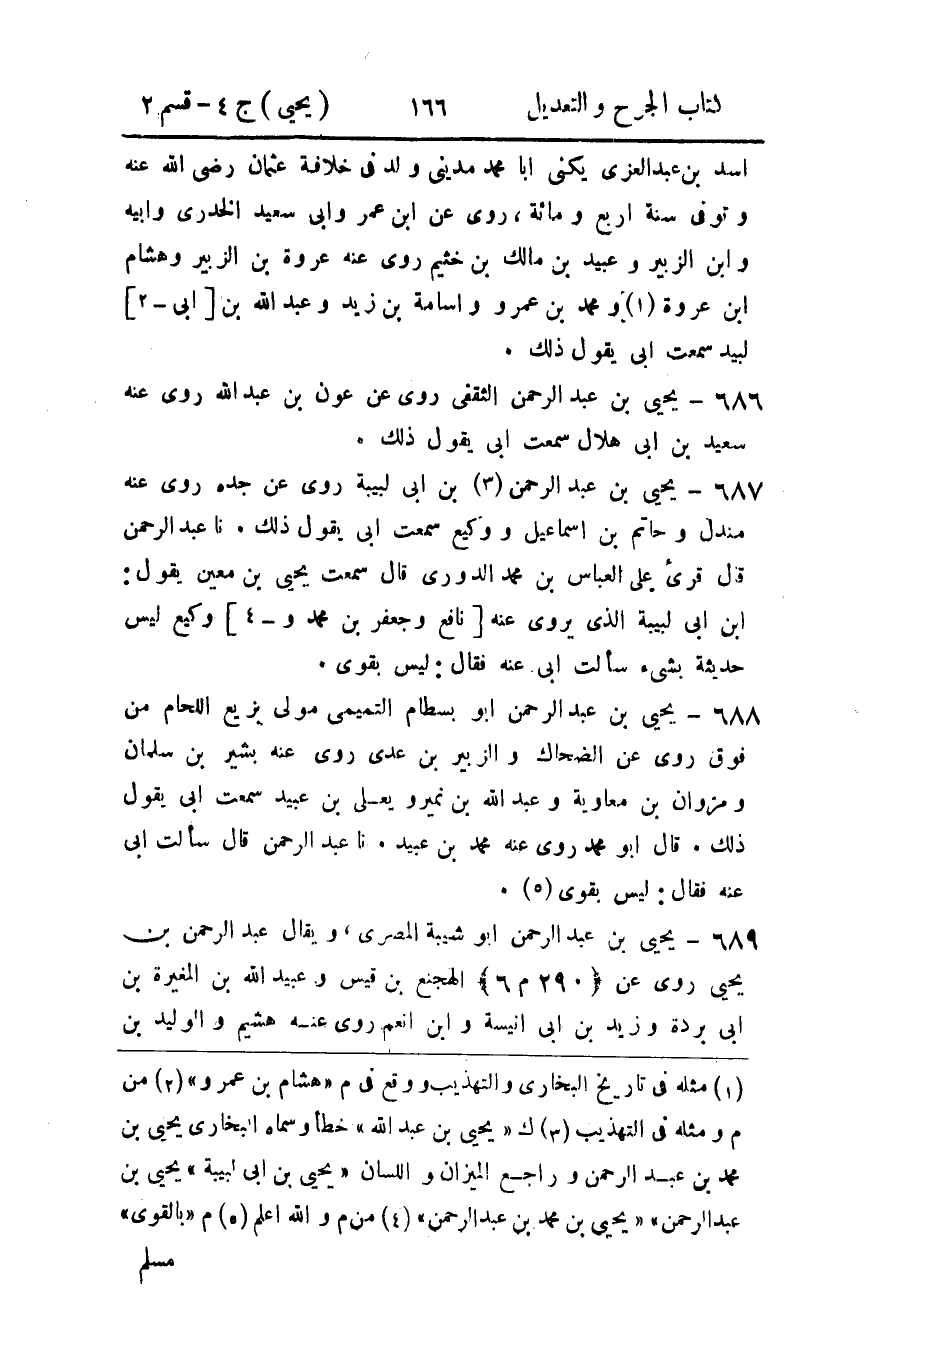 كتاب الجرح والتعديل ١٦٦ (يحيى) ج ٤ - قسم ٢
اسد بن عبدالعزى يكنى ابا محمد مدينى ولد فى خلافة عثمان رضى الله عنه
وتوفى سنة اربع ومائة، روى عن ابن عمر وابى سعيد الخدرى وابيه
وابن الزبير وعبيد بن مالك بن خثيم روى عنه عروة بن الزبير وهشام
ابن عروة (١) ومحمد بن عمرو واسامة بن زيد وعبد الله بن [ابى - ٢]
لبيد سمعت ابى يقول ذلك .
٦٨٦ - يحيى بن عبد الرحمن الثقفى روى عن عون بن عبد الله روى عنه
سعيد بن ابى هلال سمعت ابى يقول ذلك .
٦٨٧ - يحيى بن عبد الرحمن (٣) بن ابى لبيبة روى عن جده روى عنه
مندل وحاتم بن اسماعيل ووكيع سمعت ابى يقول ذلك . نا عبد الرحمن
قال قرئ على العباس بن محمد الدورى قال سمعت يحيى بن معين يقول:
ابن ابى لبيبة الذى يروى عنه [نافع وجعفر بن محمد و - ٤] وكيع ليس
حديثة بشىء سألت ابى عنه فقال: ليس بقوى .
٦٨٨ - يحيى بن عبد الرحمن ابو بسطام التميمى مولى بزيع اللحام من
فوق روى عن الضحاك والزبير بن عدى روى عنه بشير بن سلمان
ومروان بن معاوية وعبد الله بن نمير ويعلى بن عبيد سمعت ابى يقول
ذلك . قال ابو محمد روى عنه محمد بن عبيد . نا عبد الرحمن قال سألت ابى
عنه فقال: ليس بقوى (٥) .
٦٨٩ - يحيى بن عبد الرحمن ابو شيبة المصرى، ويقال عبد الرحمن بن
يحيى روى عن {٢٩٠ م ٦} الهجنع بن قيس وعبيد الله بن المغيرة بن
ابى بردة وزيد بن ابى انيسة وابن انعم روى عنه هشيم والوليد بن
(١) مثله فى تاريخ البخارى والتهذيب ووقع فى م «هشام بن عمرو» (٢) من
م ومثله فى التهذيب (٣) ك «يحيى بن عبد الله» خطأ وسماه البخارى يحيى بن
محمد بن عبد الرحمن وراجع الميزان واللسان «يحيى بن ابى لبيبة» يحيى بن
عبدالرحمن» «يحيى بن محمد بن عبدالرحمن» (٤) من م والله اعلم (٥) م «بالقوى»
مسلم